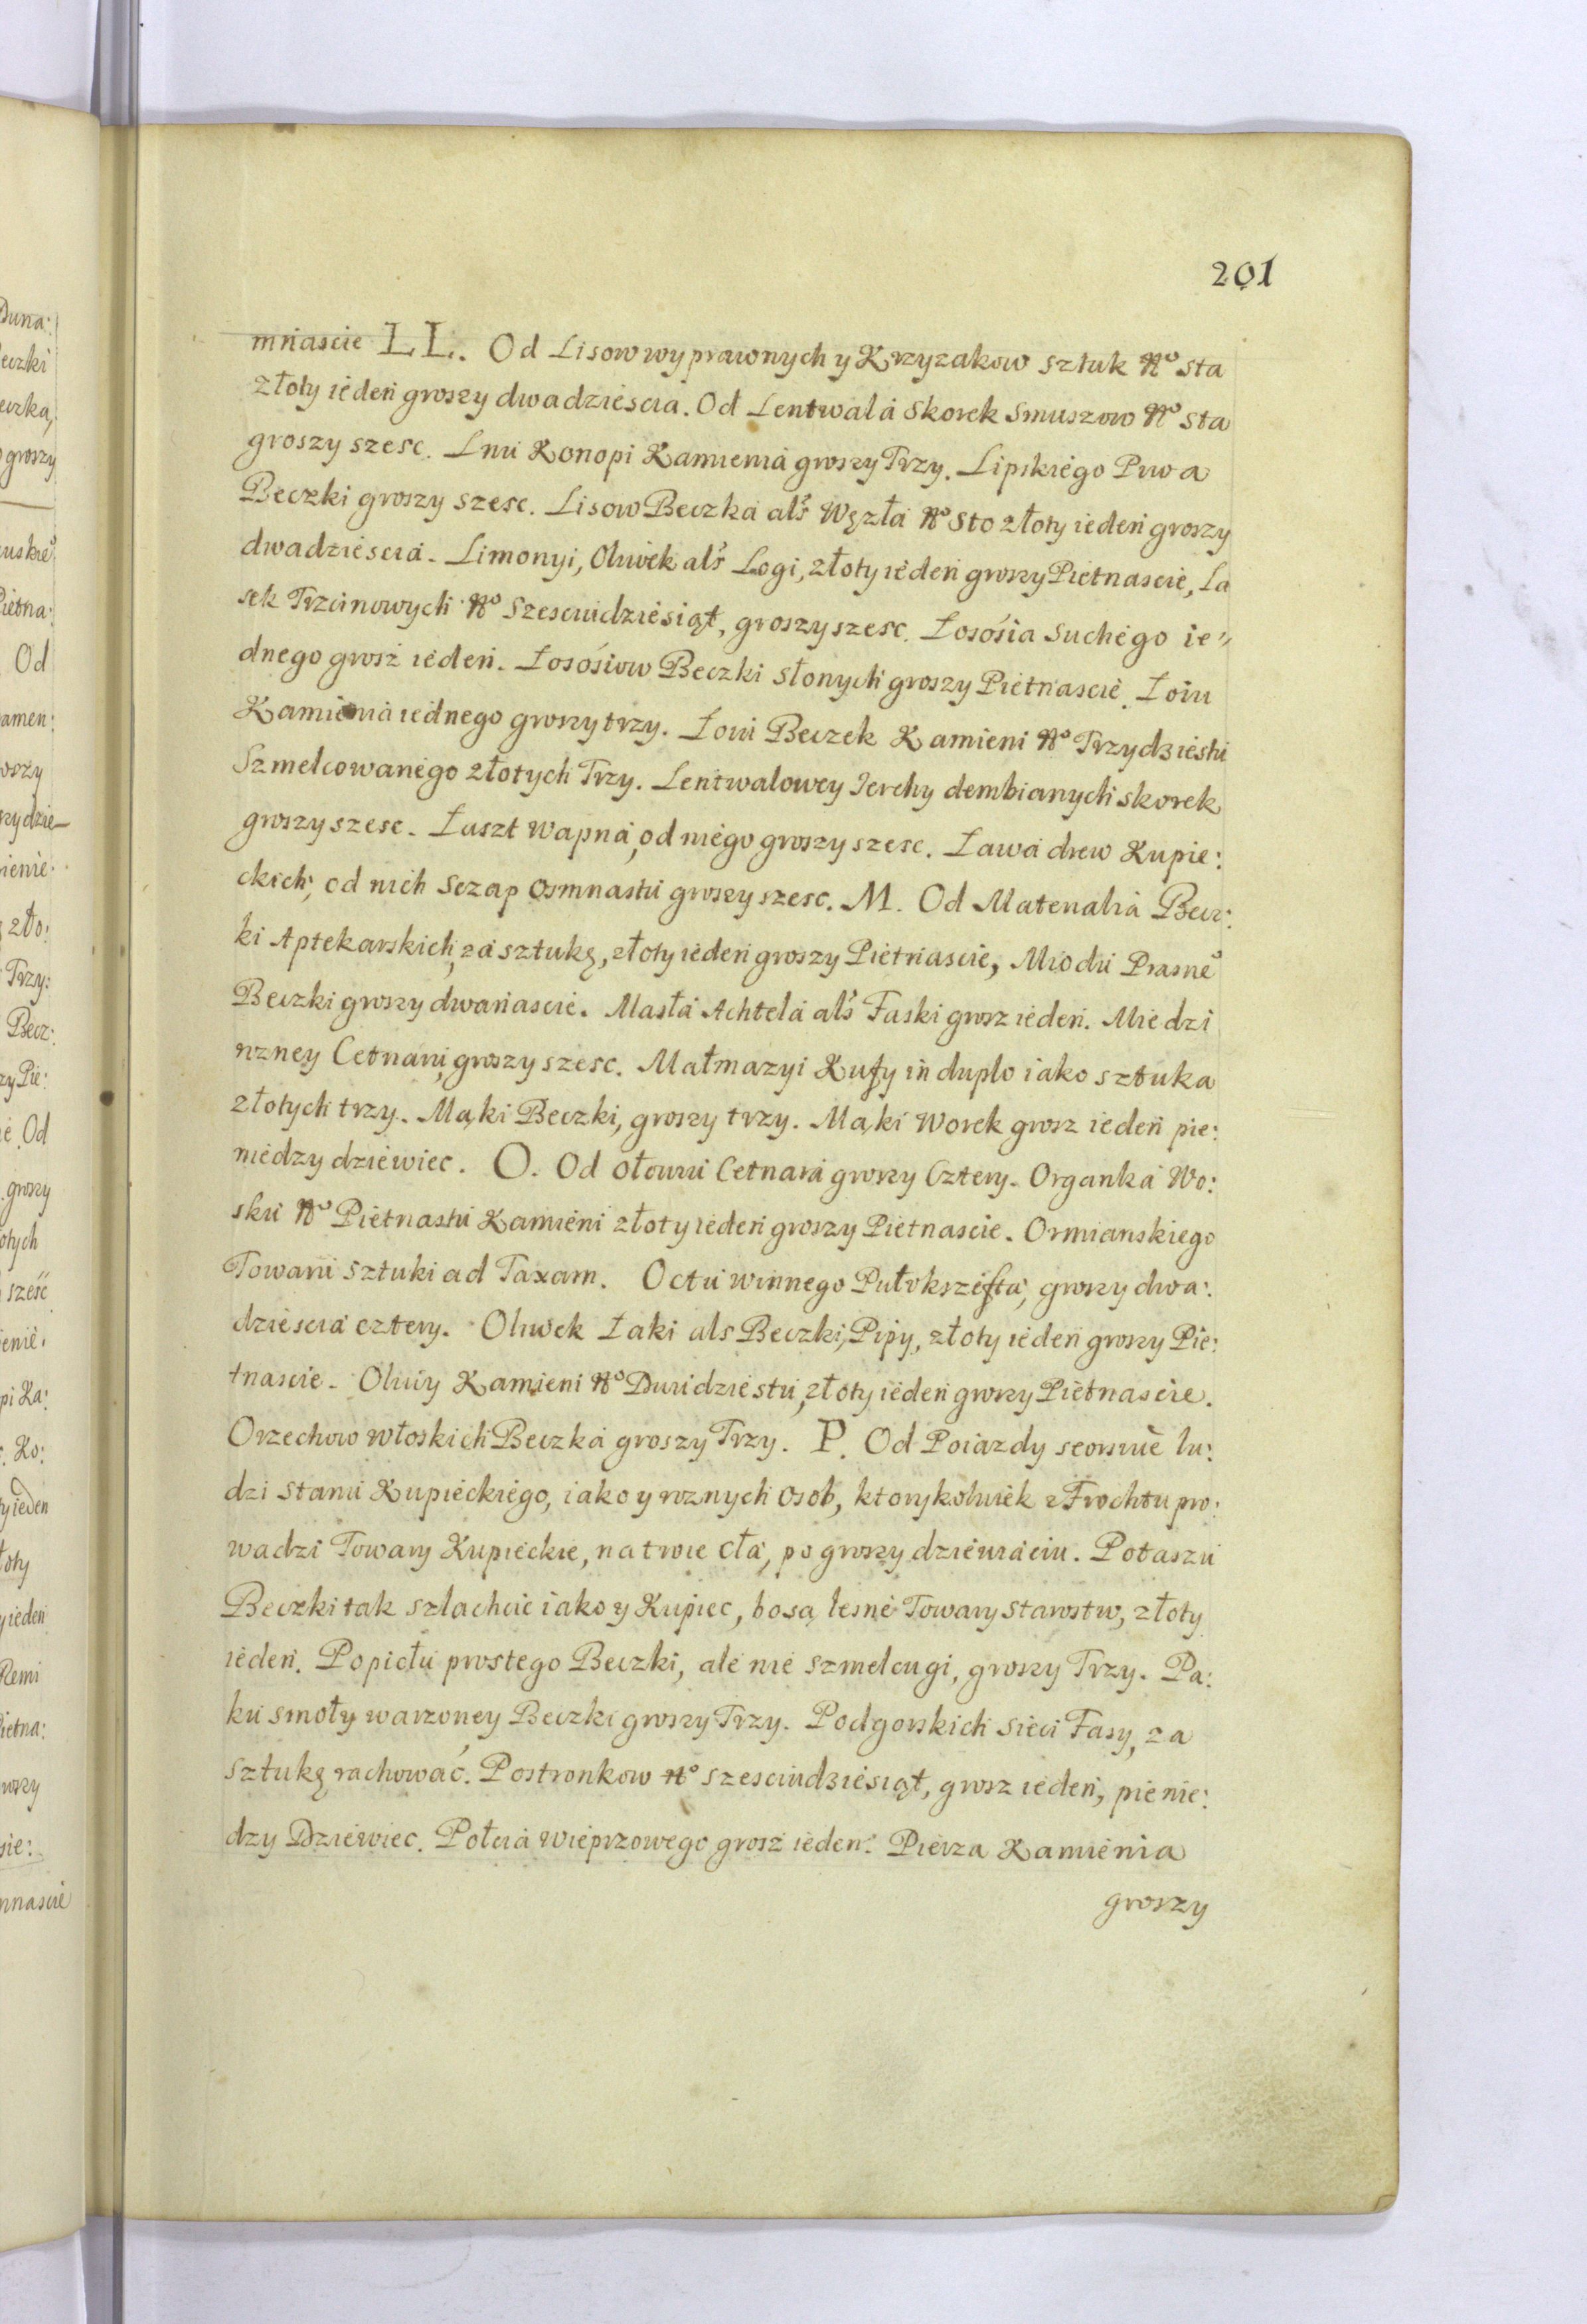 201
mnascie LL. Od Lisow wyprawonych y Krzyzakow sztuk No sta
złoty ieden groszy dwadziescia. Od Lentwala skorek smuszow No sta
groszy szesc. Lnu Konopi Kamienia groszy Trzy. Lipskiego Piwa
Beczki groszy szesc. Lisow Beczka als Węzła No Sto złoty ieden groszy
dwadziescia. Limonyi, Oliwek als Logi, złoty ieden groszy Pietnascie, La
sek Trzcinowych No Szesciudziesiąt, groszy szesc. Łososia suchego ie"
dnego grosz ieden. Łososiow Beczki słonych groszy Pietnascie. Łoiu
Kamienia iednego groszy trzy. Łoiu Beczek Kamieni No Trzydziestu
Szmelcowanego złotych Trzy. Lentwalowey Ierchy dembianych skorek
groszy szesc. Łaszt Wapna, od niego groszy szesc. Ława drew Kupie:
ckich, od nich Sczap osmnastu groszy szesc. M. Od Materialia Becz:
ki Aptekarskich, za sztukę, złoty ieden groszy Pietnascie, Miodu Prasne°
Beczki groszy dwanascie. Masła Achtela als Faski grosz ieden. Miedzi
rzney Cetnaru groszy szesc. Małmazyi Kufy in duplo iako sztuka
złotych trzy. Mąki Beczki, groszy trzy. Mąki Worek grosz ieden pie:
niedzy dziewiec. O. Od ołowiu Cetnara groszy Cztery. Organka Wo:
sku No Pietnastu Kamieni złoty ieden groszy Pietnascie. Ormianskiego
Towaru sztuki ad Taxam. Octu winnego Pułokszefta, groszy dwa:
dziescia cztery. Oliwek Łaki als Beczki, Pipy, złoty ieden groszy Pie:
tnascie. Oliwy Kamieni No Dwudziestu, złoty ieden groszy Pietnascie.
Orzechow włoskich Beczka groszy Trzy. P. Od Poiazdy seorsive lu:
dzi stanu Kupieckiego, iako y roznych osob, ktorykolwiek z Frochtu pro:
wadzi Towary Kupieckie, na twie cła, po groszy dziewiaciu. Potaszu
Beczki tak szlachcic iako y Kupiec, bo są lesne Towary starostw, złoty
ieden. Popiołu prostego Beczki, ale nie szmelcugi, groszy Trzy. Pa:
ku smoły warzoney Beczki groszy Trzy. Podgorskich sieci Fasy, za
sztukę rachować. Postronkow No szesciudziesiąt, grosz ieden, pienie:
dzy Dziewiec. Połcia wieprzowego grosz ieden. Pierza Kamienia
groszy